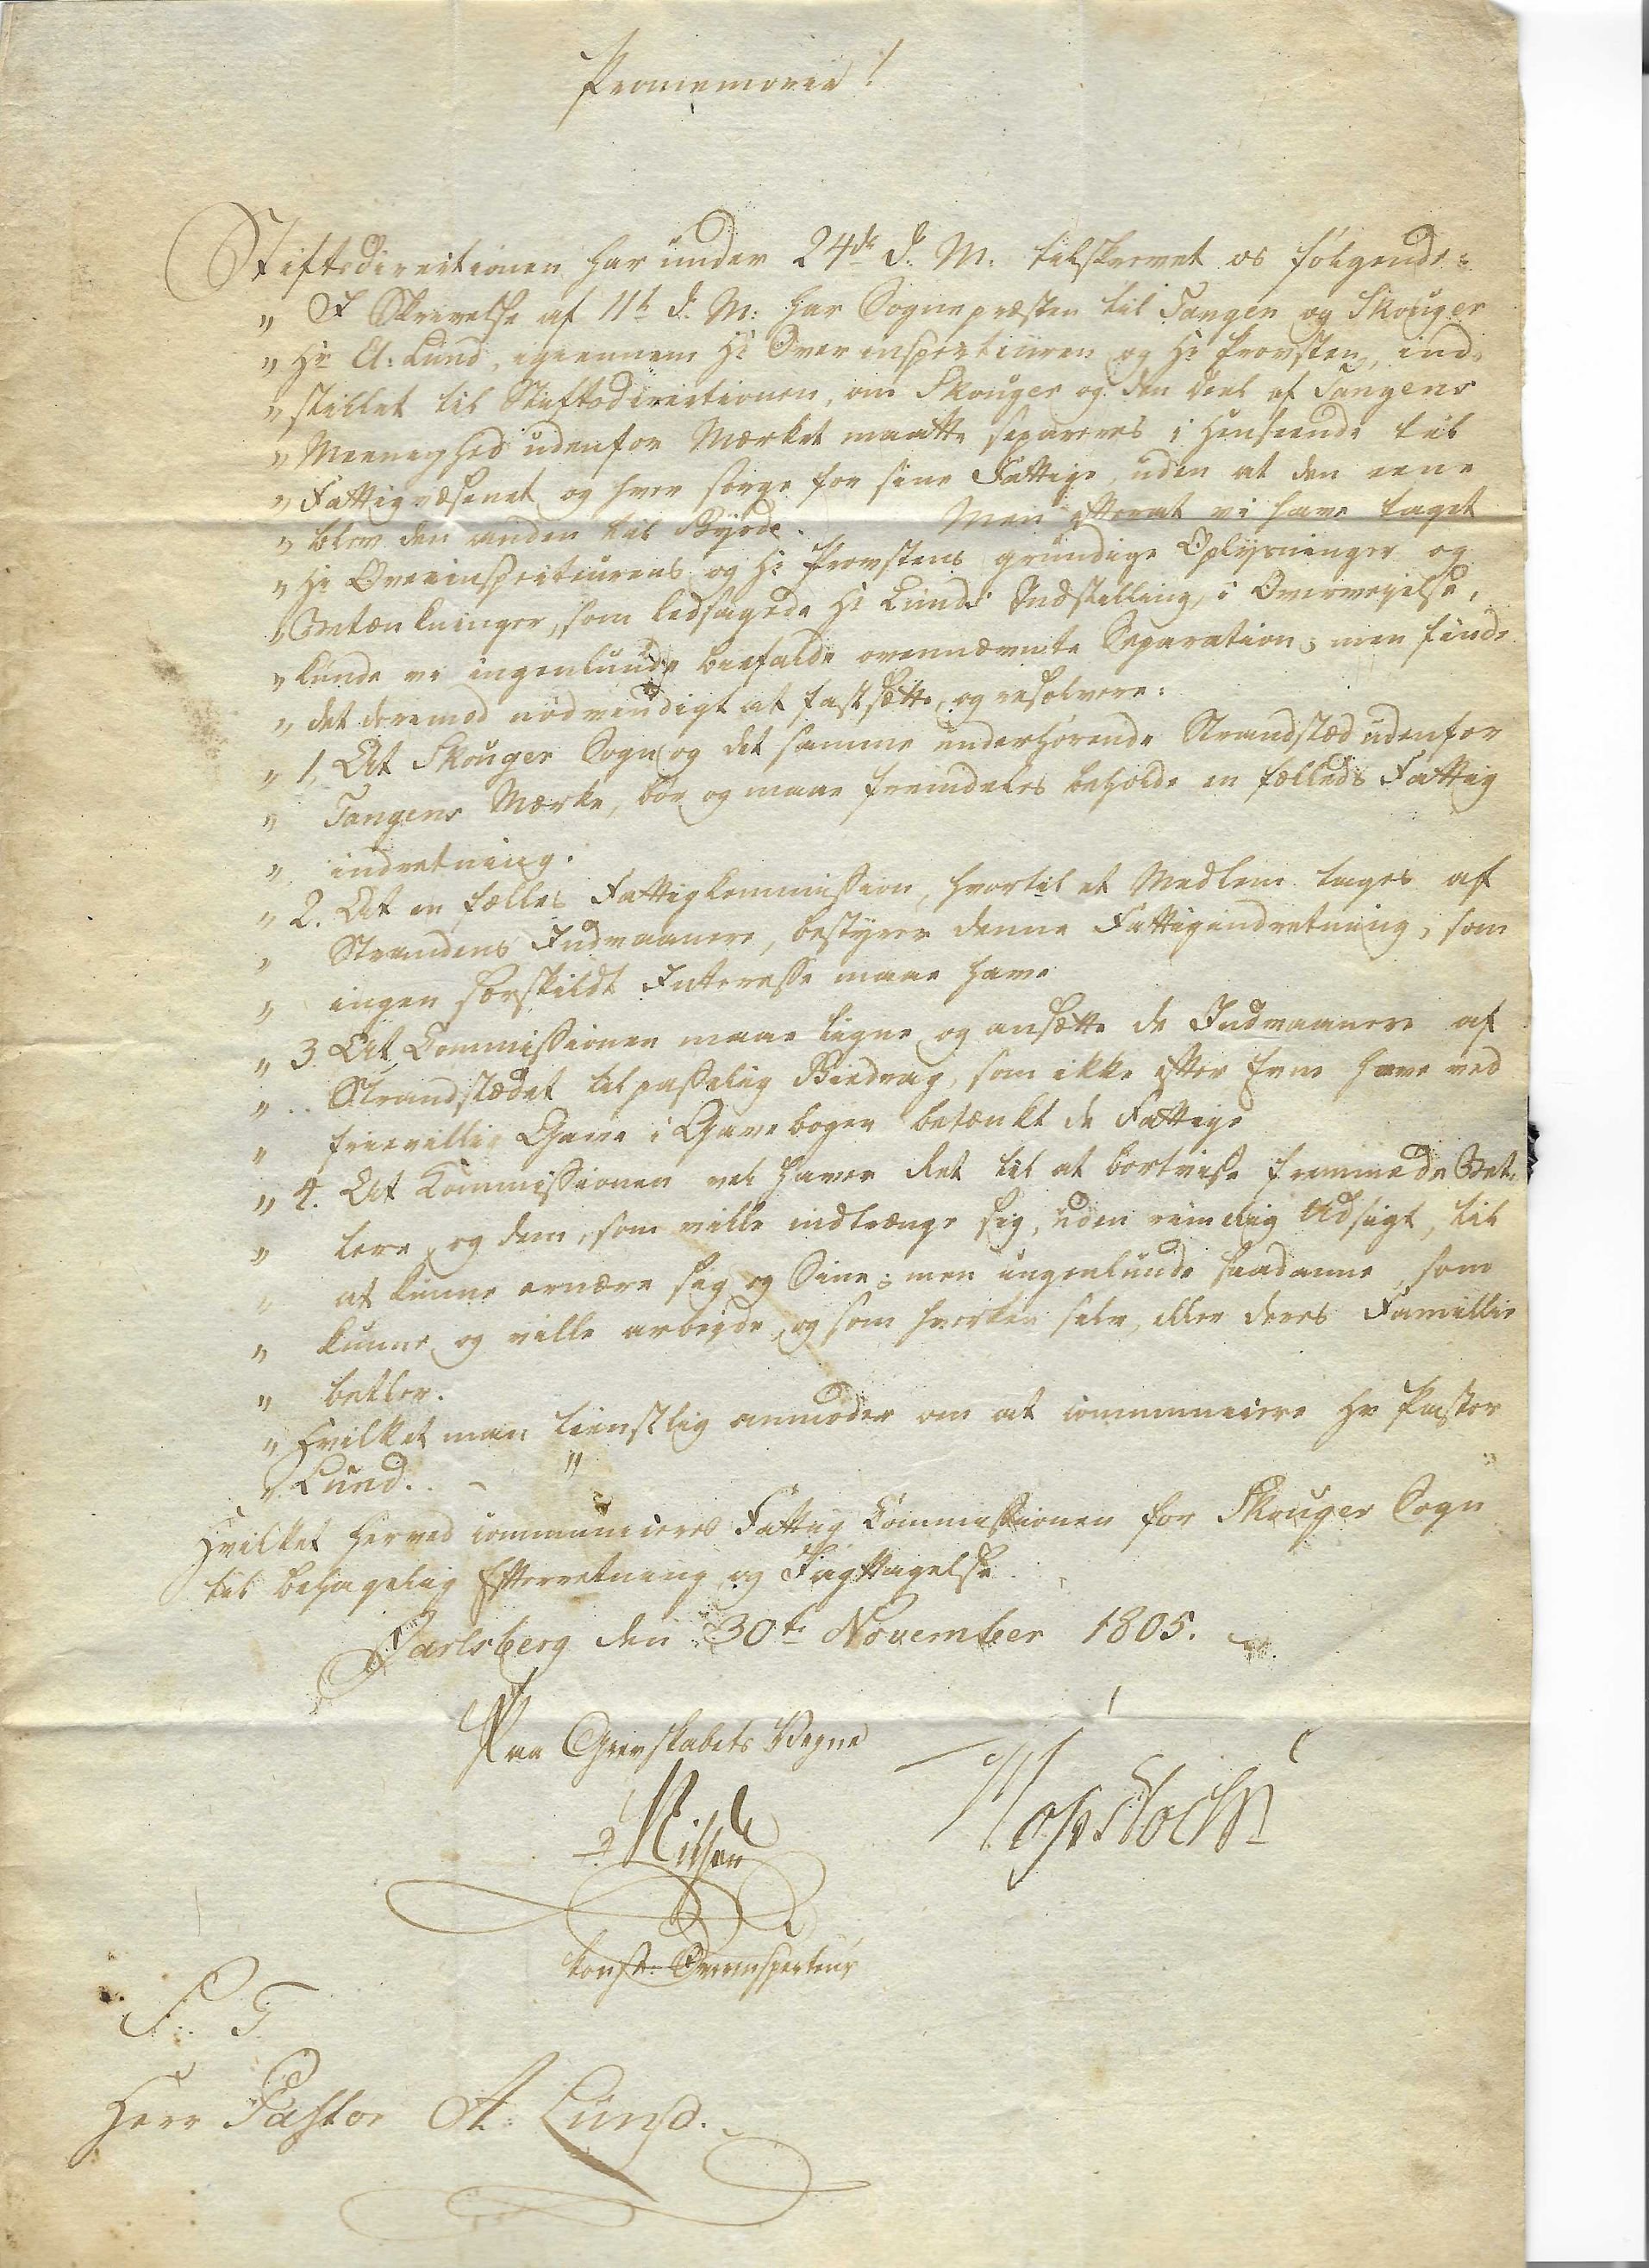 Promemoria!
Stiftsdirectionen har under 24de d. M. tilskrevet os følgende:
" I Skrivelse af 11te d. M: har Sognepræsten til Tangen og Skouger
" Hr A: Lund, igiennem Hr Overinspecteuren og Hr Provsten, ind-
" stillet til Stiftsdirectionen, om Skouger og den Deel af Tangens
" Meenighed udenfor Mærket maatte separeres i Henseende til
" Fattigvæsenet og hver sørge for sine Fattige, uden at den eene
" blev den anden til Byrde. Men efterat vi have taget
" Hr Overinspecteurens og Hr Provstens grundige Oplysninger og
" Betænkninger, som ledsagede Hr Lunds Indstilling, i Overveyelse,
" kunde vi ingenlunde biefalde ovennævnte Separation; men finde
" det derimod nødvendigt at fastsætte, og resolvere:
" 1, At Skouger Sogn og det samme underhørende Strandstæd udenfor
" Tangens Mærke, bør og maae fremdeles beholde en fælleds Fattig
" indretning.
" 2. At en fælles Fattigkommission, hvortil et Medlem tages af
" Strandens Indvaanere, bestyrer denne Fattigindretning, som
" ingen særskildt Interesse maae have
" 3. At Commissionen maae ligne og ansætte de Indvaanere af
" Strandstædet til passelig Biedrag, som ikke efter Evne have ved
" frievillig Gave i Gavebogen betænkt de Fattige
" 4. At Kommissionen vel haver Ret til at bortvise fremmede Bet-
" lere, og dem, som ville indtrænge sig, uden rimelig Udsigt, til
" at kunne ernære sig og Sine; men ingenlunde saadanne, som
" kunne og ville arbeyde, og som hverken selv, eller deres Familie
" betler.
" Hvilket man tienstlig anmoder om at communicere Hr Pastor
" Lund. - "
Hvilket herved communiceres Fattig Commissionen for Skouger Sogn
til behagelig Efterretning og Iagttagelse.
Jarlsberg den 30te November 1805.
Paa Grevskabets Vegne
Nilsen
konst: Overinspecteur
S. T.
Herr Pastor A: Lund.